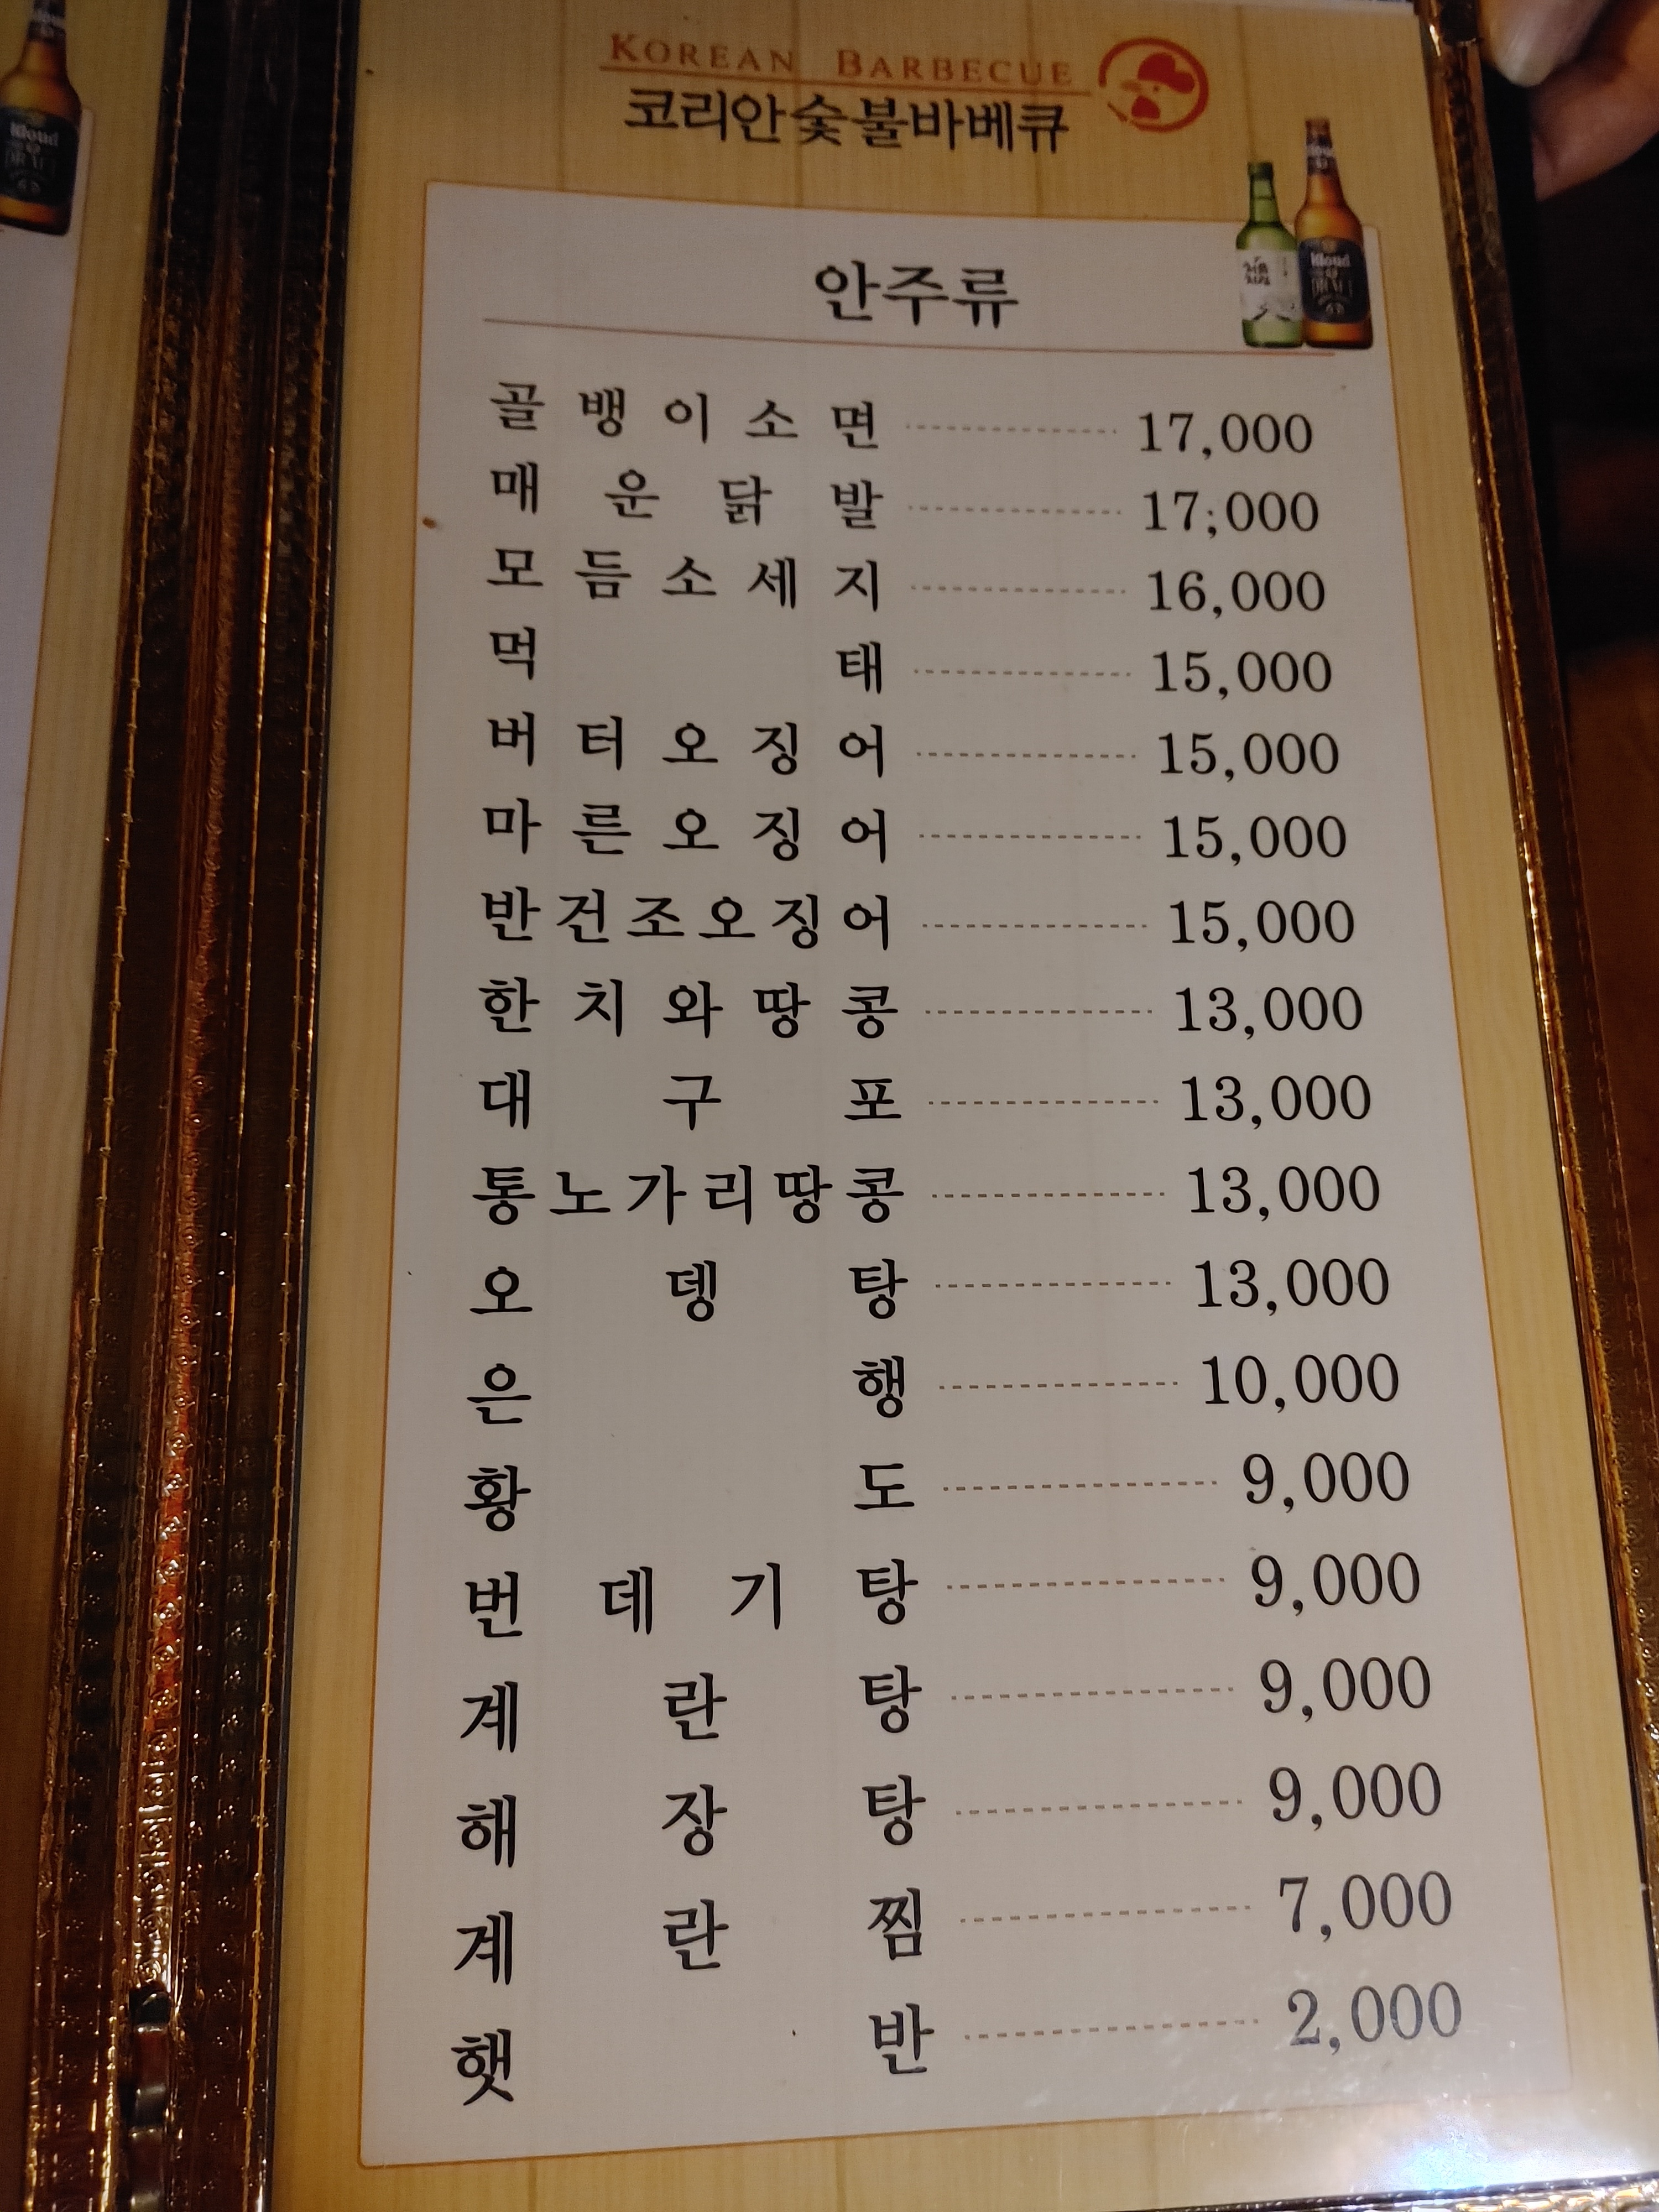 KOREAN BARBECUE
코리안숯불바베큐
안주류
골뱅이소면 17,000
매운닭발 17,000
모듬소세지 16,000
먹태 15,000
버터오징어 15,000
마른오징어 15,000
반건조오징어 15,000
한치와땅콩 13,000
대구포 13,000
통노가리땅콩 13,000
오뎅탕 13,000
은행 10,000
황도 9,000
번데기탕 9,000
계란탕 9,000
해장탕 9,000
계란찜 7,000
햇반 2,000
Kloud
DRAFT
Kloud